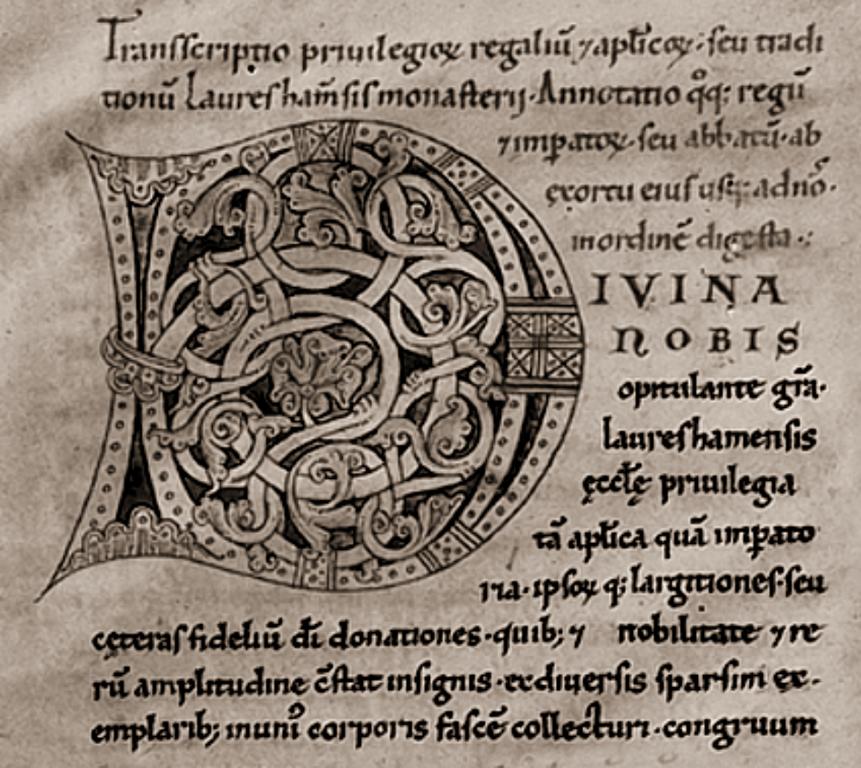 Transscriptio priuilegioꝝ regaliū ⁊ apłicoꝝ · seu tradi
tionū Lauresham̄sis monasterij · Annotatio q̊q; regū
⁊ imꝑatoꝝ · seu abbatū · ab
exortu eius usq; ad nō ·
in ordinē digesta .:
D IVINA
NOBIS
opitulante gr̄a ·
laureshamensis
ęccłę priuilegia
tā apłica quā imꝑato
ria · ipsoꝝ q; largitiones · seu
cęteras fideliū dī donationes · quib; ⁊ nobilitate ⁊ re
rū amplitudine c̄stat insignis · ex diuersis sparsim ex ·
emplarib; in uniꝰ corporis fascē collecturi · congruum